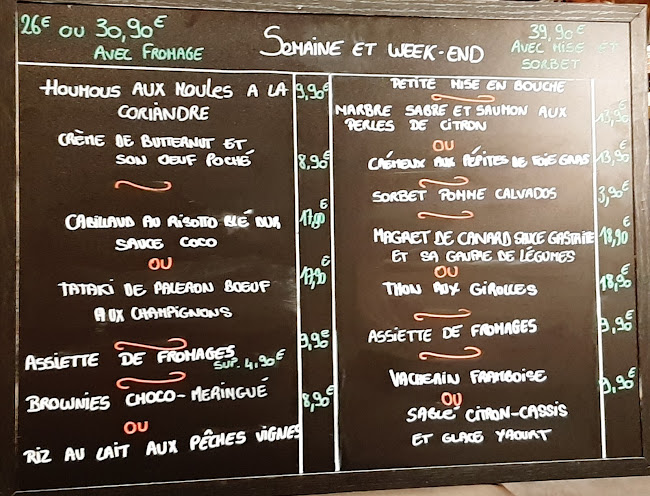 26€ OU 30,90€
AVEC FROMAGE
SEMAINE ET WEEK-END
39,90€
AVEC MISE ET
SORBET
HOUMOUS AUX MOULES A LA
CORIANDRE
9,90€
CRÈME DE BUTTERNUT ET
SON OEUF POCHÉ
8,90€
CABILLAUD AU RISOTTO BLÉ DUR
SAUCE COCO
17,90€
OU
TATAKI DE PALERON BOEUF
AUX CHAMPIGNONS
17,90€
ASSIETTE DE FROMAGES
SUP. 4,90€
9,90€
BROWNIES CHOCO-MERINGUÉ
8,90€
OU
RIZ AU LAIT AUX PÊCHES VIGNES
PETITE MISE EN BOUCHE
MARBRE SABRE ET SAUMON AUX
PERLES DE CITRON
13,90€
OU
CRÉMEUX AUX PÉPITES DE FOIE GRAS
13,90€
SORBET POMME CALVADOS
3,90€
MAGRET DE CANARD SAUCE GASTRITE
ET SA GAUFRE DE LÉGUMES
18,90€
OU
THON AUX GIROLLES
18,90€
ASSIETTE DE FROMAGES
9,90€
VACHERIN FRAMBOISE
9,90€
OU
SABLÉ CITRON-CASSIS
ET GLACE YAOURT